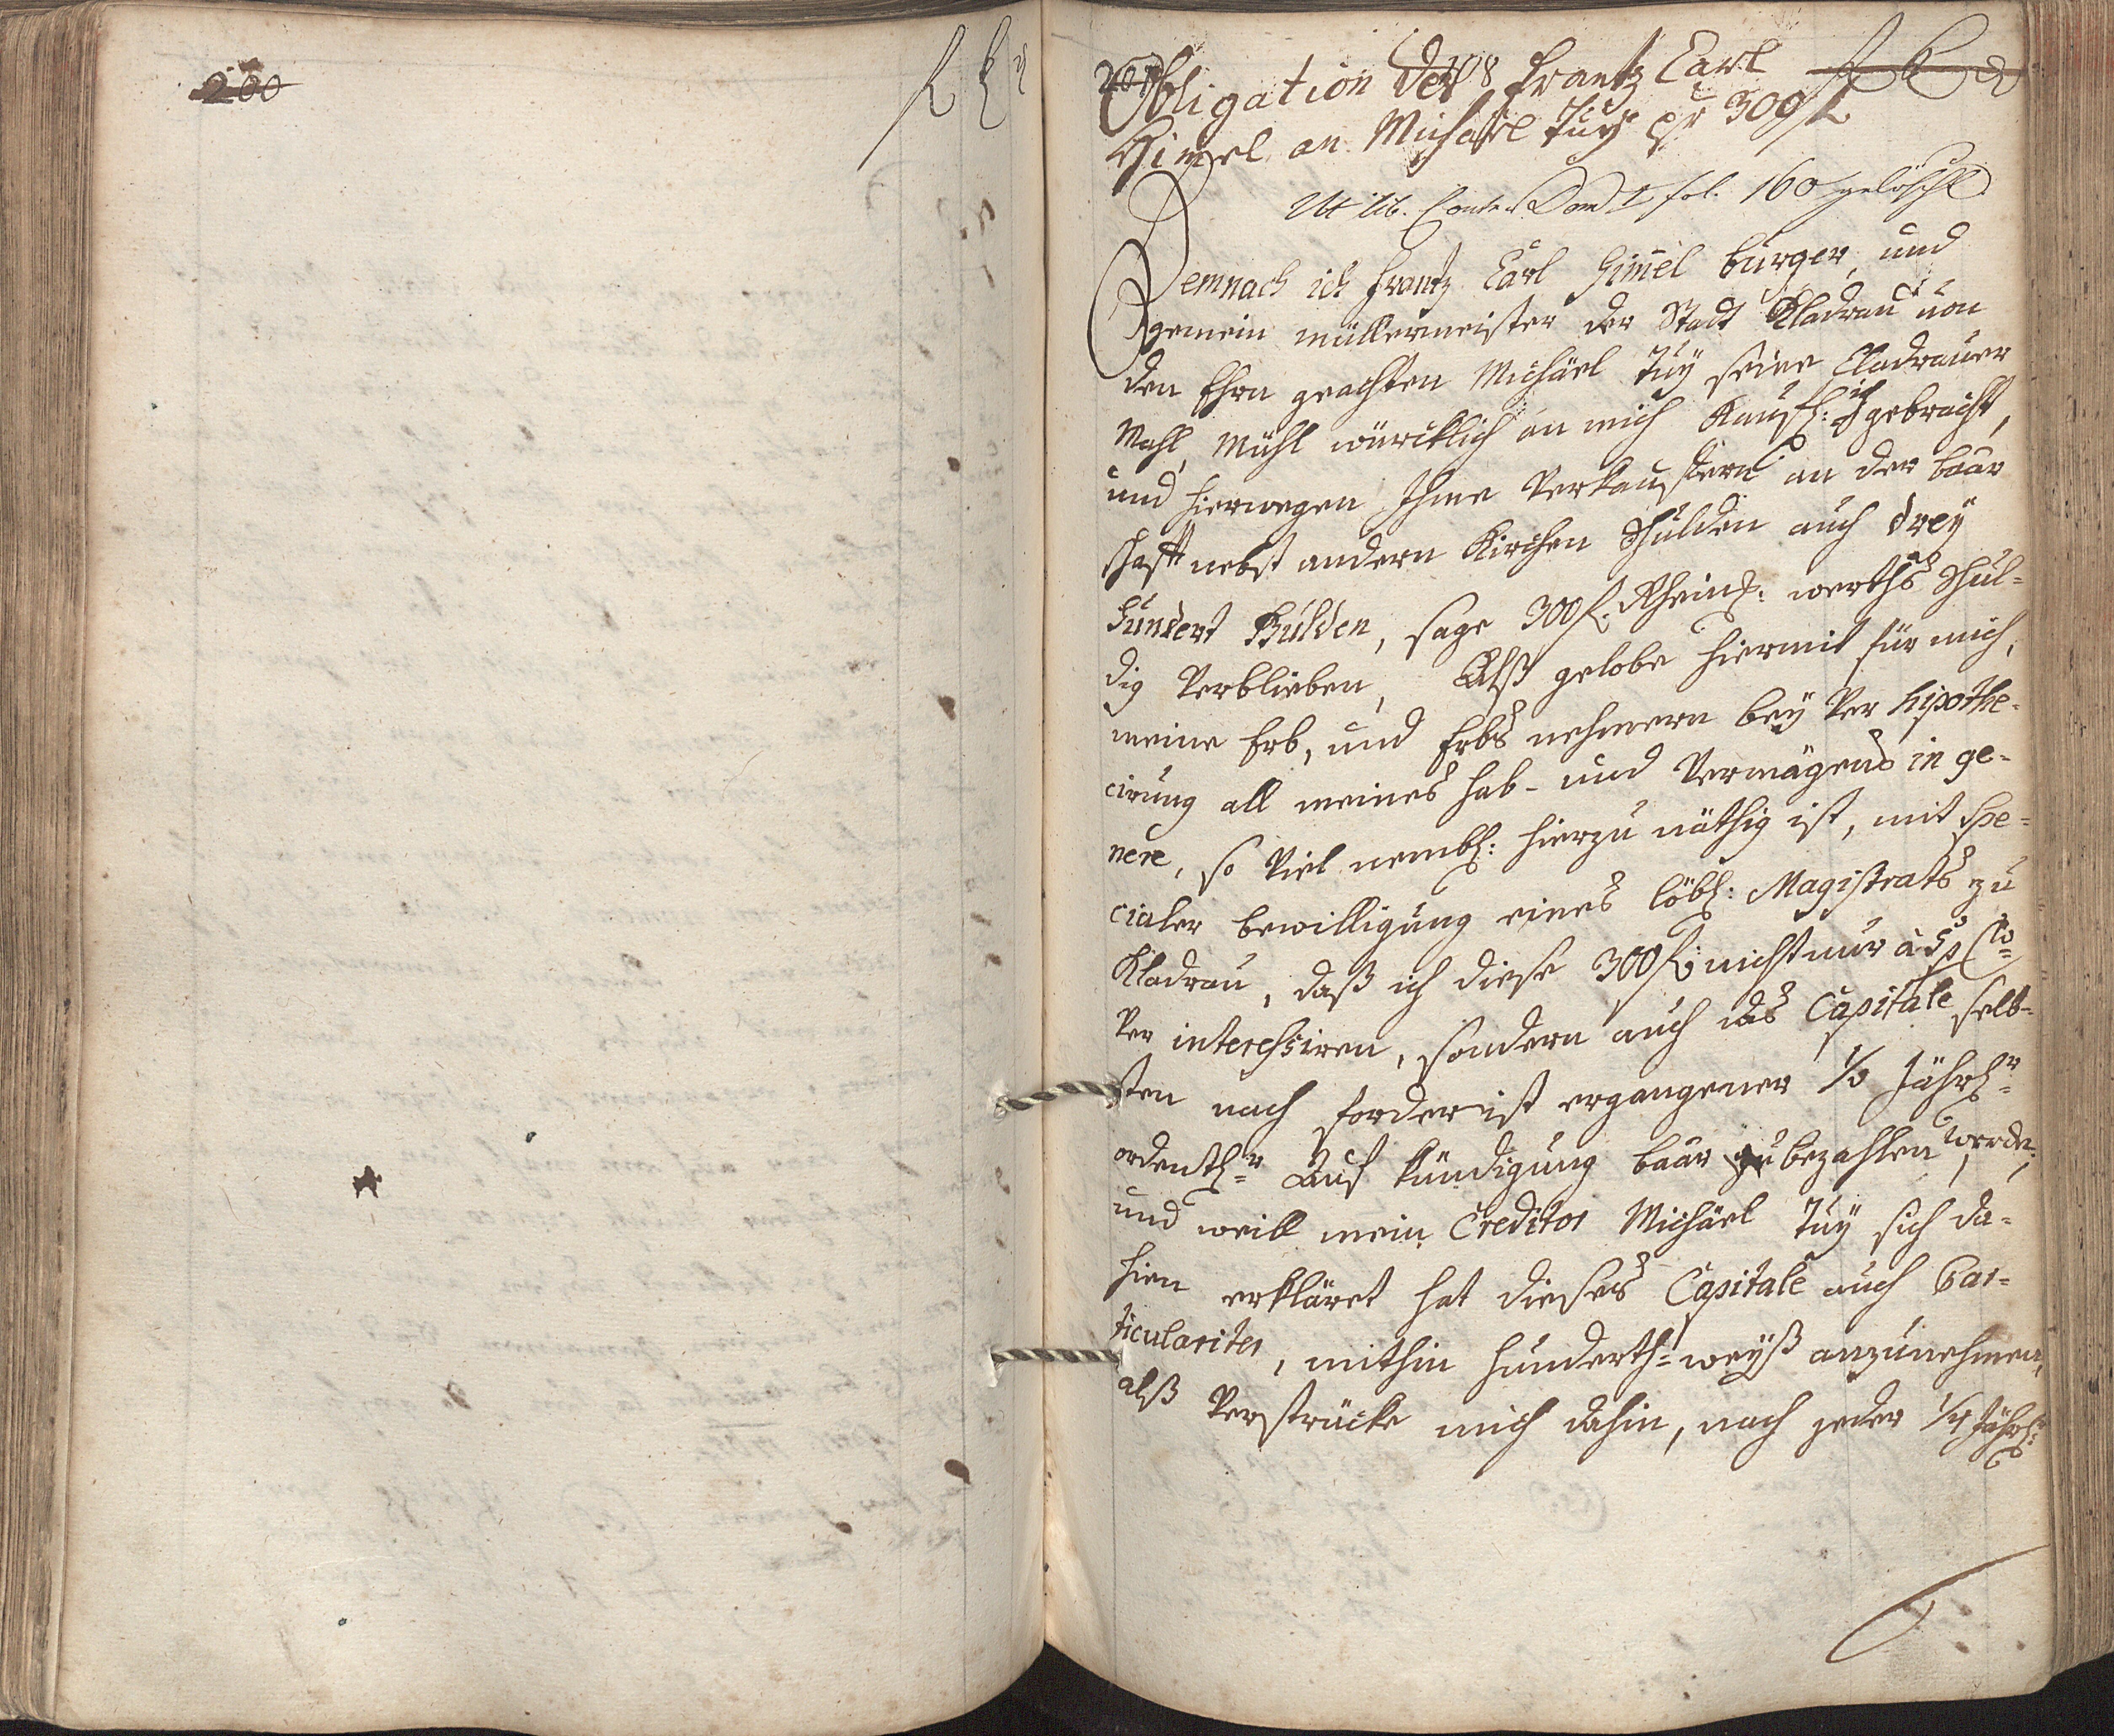 200
f k x
201
108
f k x
Obligation des Frantz Carl
Himel an Michäel Tuÿ pr 300 f
Vt lib. Contr. Tom I fol. 160 gelöscht
Demnach ich Frantz Carl Himel burger, und
gemein müllermeister der Stadt Kladrau von
den Ehrn geachten Michäel Tuÿ seine Cladrauer
Mahl Mühl würcklich an mich Kaufl: ich gebracht,
und hierwegen Ihme Verkauffern an der baar
schafft nebst andern Kirchen Schulden auch dreÿ
hundert Gulden, sage 300 f. Rheinl: werths schul-
dig Verblieben, Alß gelobe hiermit für mich,
meine Erb, und Erbs nehmern beÿ Ver hipothe-
cirung all meines Hab- und Vermögens in ge-
nere, so Viel nembl: hierzu nöthig ist, mit spe-
cialer bewilligung eines löbl: Magistrats zu
Kladrau, daß ich diese 300 f: nicht nur à 5 p Cto
Ver interessiren, sondern auch das Capitale selb-
sten nach forderist ergangener 1/2 Jährlr
ordentlr Auf kündigung baar zu bezahlen werde,
und weill mein Creditor Michäel Tuÿ sich da-
hien erkläret hat dieses Capitale auch Par-
ticulariter, mithin hunderth-weÿß anzunehmen,
alß Verstrücke mich dahin, nach jeder 1/4 Jährl: